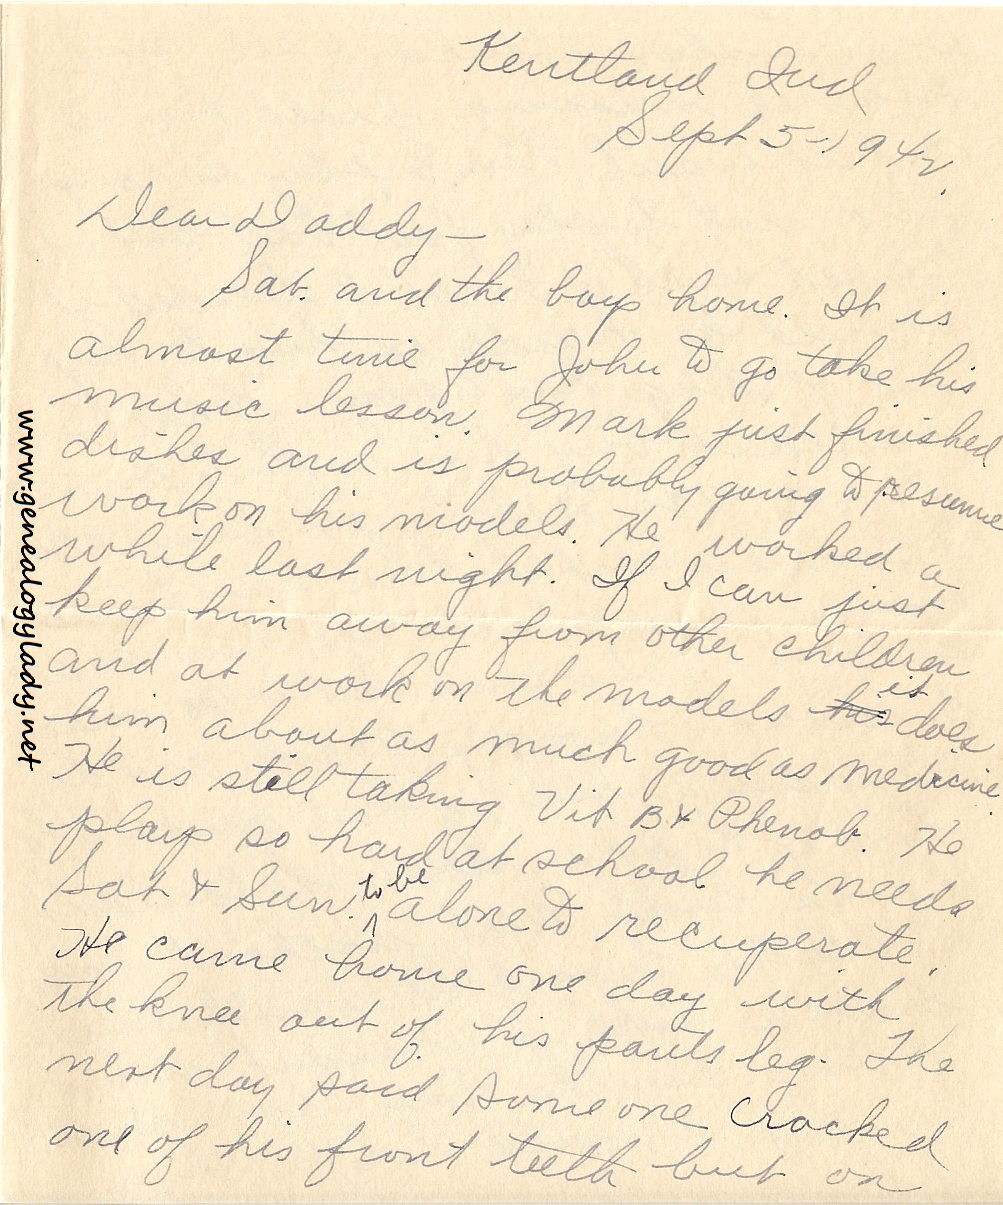 Kentland Ind
Sept 5-1942.
Dear Daddy—
Sat. and the boys home. It is
almost time for John to go take his
music lesson. Mark just finished
dishes and is probably going to resume
work on his models. He worked a
while last night. If I can just
keep him away from other children
and at work on the models ~~his~~ it does
him about as much good as medicine
He is still taking Vit B & Phenob. He
plays so hard at school he needs
Sat & Sun. to be alone to recuperate.
He came home one day with
the knee out of his pants leg. The
next day said someone cracked
one of his front teeth but on
www.genealogylady.net